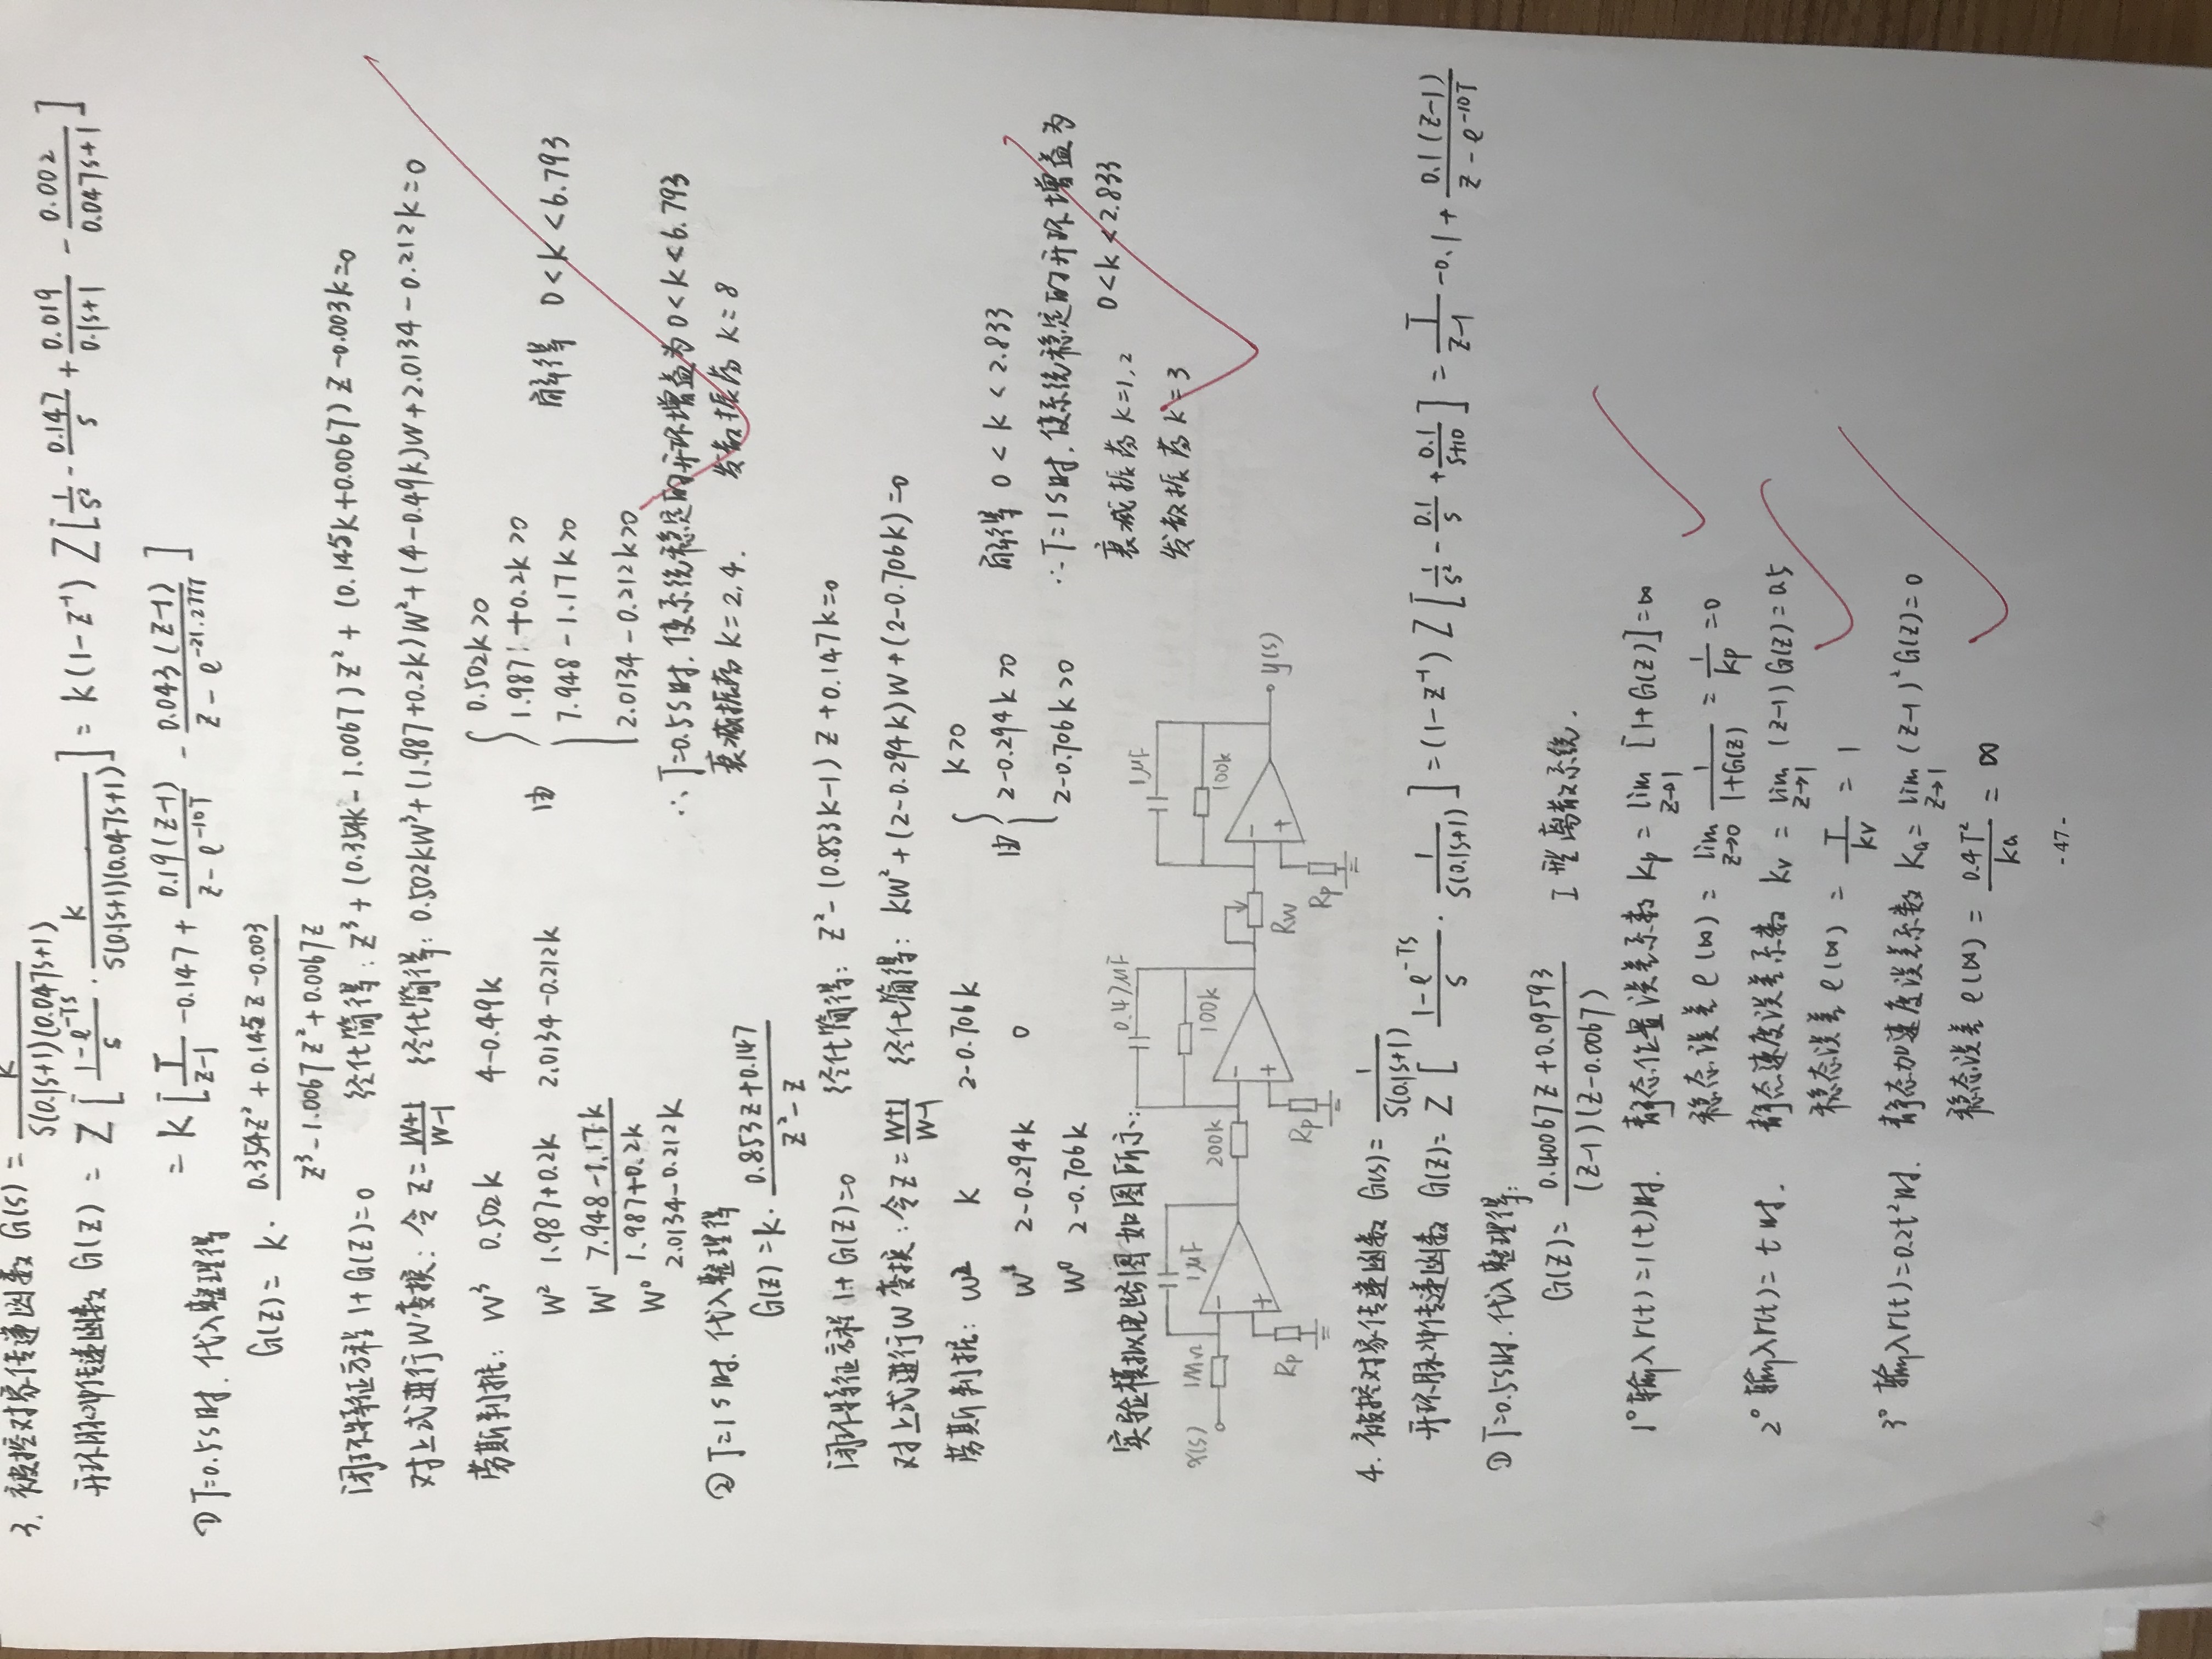 3. 被控对象传递函数 G(s) = k / s(0.1s+1)(0.047s+1)
开环脉冲传递函数 G(z) = Z[ (1-e^-Ts)/s · k/s(0.1s+1)(0.047s+1) ] = k(1-z⁻¹) Z[ 1/s² - 0.147/s + 0.019/(0.1s+1) - 0.002/(0.047s+1) ]
= k [ T/(z-1) - 0.147 + 0.19(z-1)/(z-e^-10T) - 0.043(z-1)/(z-e^-21.277T) ]
① T=0.5s时. 代入整理得
G(z) = k · (0.354z²+0.145z-0.003)/(z³-1.0067z²+0.0067z)
闭环特征方程 1+G(z)=0 经化简得: z³+(0.354k-1.0067)z²+(0.145k+0.0067)z-0.003k=0
对上式进行W变换: 令z=(w+1)/(w-1) 经化简得: 0.502kw³+(1.987+0.2k)w²+(4-0.49k)w+2.0134-0.212k=0
劳斯判据: w³ 0.502k 4-0.49k
w² 1.987+0.2k 2.0134-0.212k
w¹ (7.948-1.17k)/(1.987+0.2k)
w⁰ 2.0134-0.212k
由 { 0.502k>0
1.987+0.2k>0
7.948-1.17k>0
2.0134-0.212k>0
解得 0<k<6.793
∴ T=0.5s时, 使系统稳定的开环增益为0<k<6.793
衰减振荡 k=2,4. 发散振荡 k=8
② T=1s时. 代入整理得
G(z)=k· (0.853z+0.147)/(z²-z)
闭环特征方程 1+G(z)=0 经化简得: z²-(0.853k-1)z+0.147k=0
对上式进行W变换: 令z=(w+1)/(w-1) 经化简得: kw²+(2-0.294k)w+(2-0.706k)=0
劳斯判据: w² k 2-0.706k
w¹ 2-0.294k 0
w⁰ 2-0.706k
由 { k>0
2-0.294k>0
2-0.706k>0
解得 0<k<2.833
∴ T=1s时, 使系统稳定的开环增益为
0<k<2.833
衰减振荡 k=1,2
发散振荡 k=3
实验模拟电路图如图所示:
x(s) 1MΩ 1μF Rp 200k 0.47μF 100k Rp Rw 1μF 100k Rp y(s)
4. 被控对象传递函数 G(s)= 1/s(0.1s+1)
开环脉冲传递函数 G(z)= Z[ (1-e^-Ts)/s · 1/s(0.1s+1) ] = (1-z⁻¹) Z[ 1/s² - 0.1/s + 0.1/(s+10) ] = T/(z-1) - 0.1 + 0.1(z-1)/(z-e^-10T)
① T=0.5s时. 代入整理得:
G(z)= (0.40067z+0.09593)/(z-1)(z-0.0067) I型离散系统.
1° 输入r(t)=1(t)时. 静态位置误差系数 kp = lim z→1 [1+G(z)]=∞
稳态误差 e(∞) = lim z→0 1/(1+G(z)) = 1/kp =0
2° 输入r(t)= t 时. 静态速度误差系数 kv = lim z→1 (z-1)G(z)=0.5
稳态误差 e(∞) = T/kv = 1
3° 输入r(t)=0.2t²时. 静态加速度误差系数 ka= lim z→1 (z-1)²G(z)=0
稳态误差 e(∞) = 0.4T²/ka = ∞
- 47 -